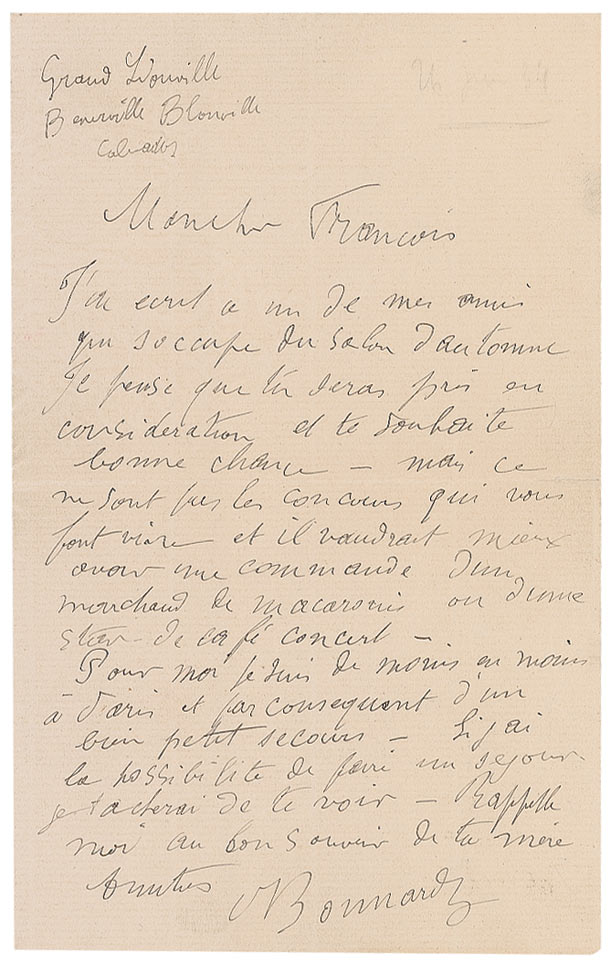 Grand
Benerville Blonville
Calvados
Mon cher François
J'ai ecrit a un de mes amis
qui s'occupe du Salon d'automne
Je pense que tu seras pris en
consideration et te souhaite
bonne chance – mais ce
ne sont pas les concours qui vous
font vivre et il vaudrait mieux
avoir une commande d'un
marchand de macaronis ou d'une
star de café concert –
Pour moi je suis de moins en moins
à Paris et par consequent d'un
bien petit secours – Si j'ai
la possibilite de faire un sejour
je tacherai de te voir – Rappelle
moi au bon souvenir de ta mère
Amities Bonnard